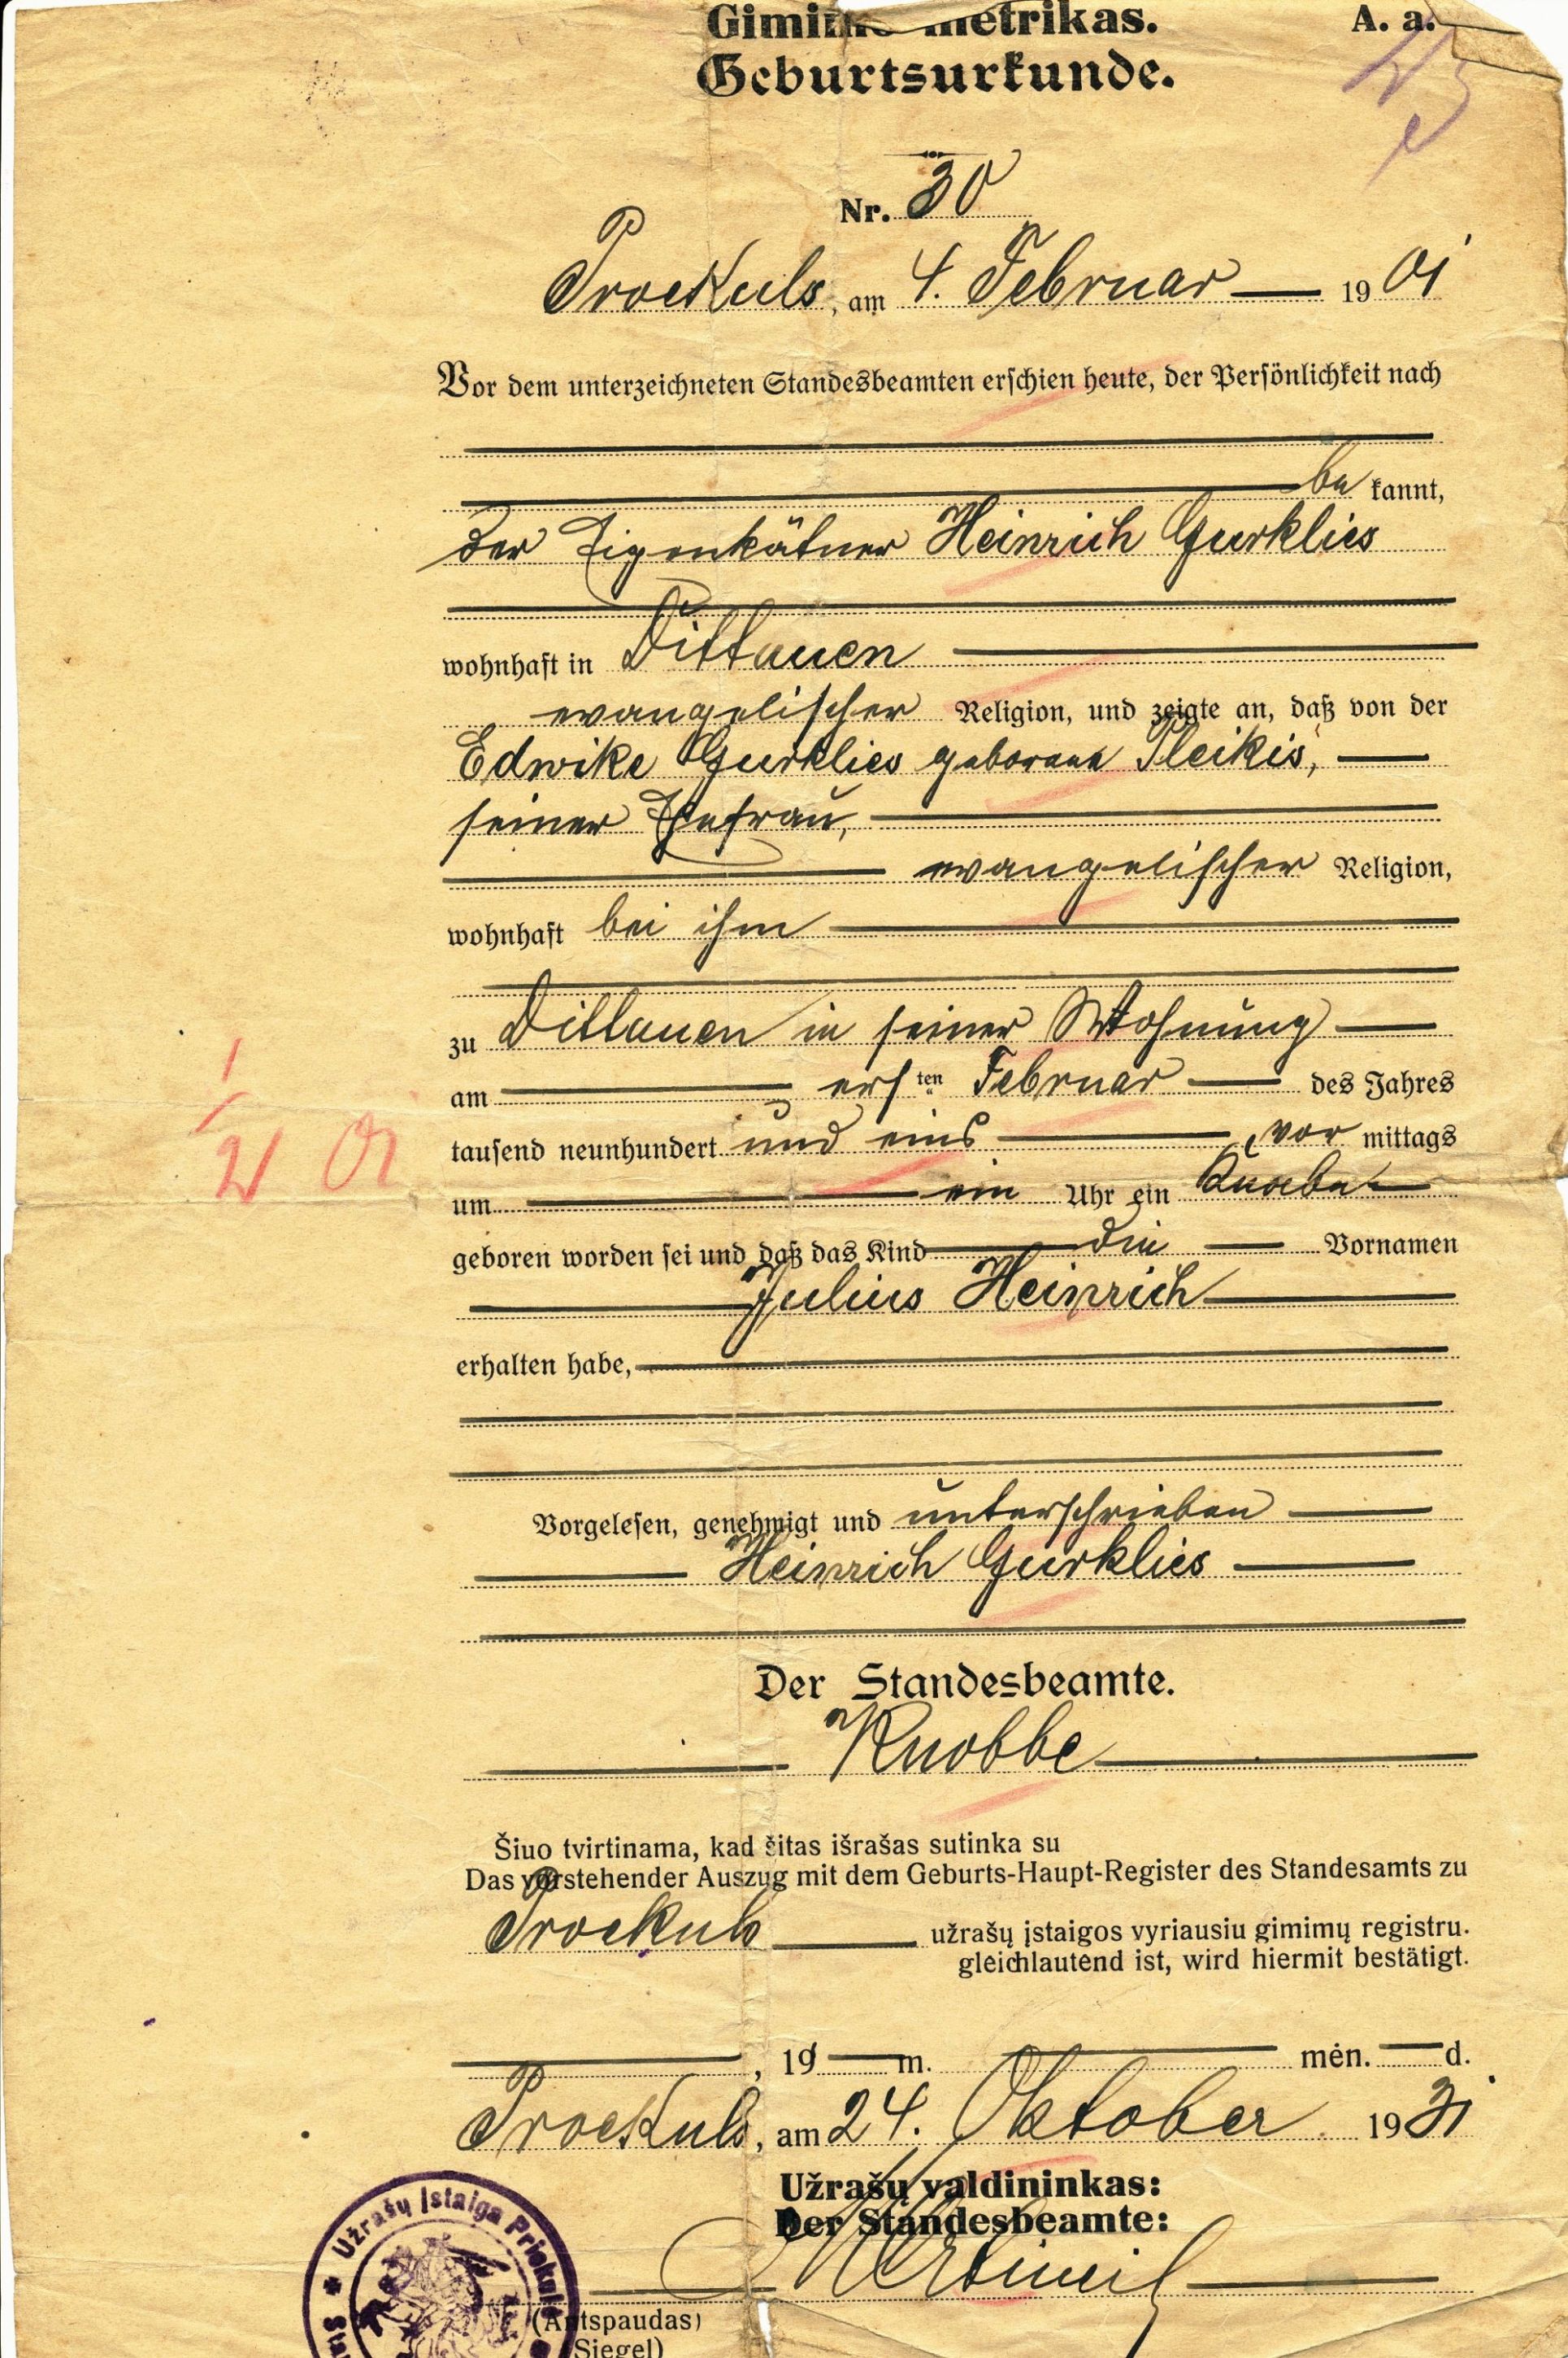 Gimimo metrikas. A. a.
Geburtsurkunde.
Nr. 30
Proekuls, am 4. Februar 1901
Vor dem unterzeichneten Standesbeamten erschien heute, der Persönlichkeit nach
be kannt,
der Eigenkätner Heinrich Gurklies
wohnhaft in Dittauen
evangelischer Religion, und zeigte an, daß von der
Edwike Gurklies geborene Pleikis,
seiner Ehefrau,
evangelischer Religion,
wohnhaft bei ihm
zu Dittauen in seiner Wohnung
am ersten Februar des Jahres
tausend neunhundert und eins, vor mittags
um ein Uhr ein Knabe
geboren worden sei und daß das Kind die Vornamen
Julius Heinrich
erhalten habe,
1/2 01
Vorgelesen, genehmigt und unterschrieben
Heinrich Gurklies
Der Standesbeamte.
Knobbe
Šiuo tvirtinama, kad šitas išrašas sutinka su
Das vorstehender Auszug mit dem Geburts-Haupt-Register des Standesamts zu
Proekuls užrašų įstaigos vyriausiu gimimų registru.
gleichlautend ist, wird hiermit bestätigt.
, 19 m. mėn. d.
Proekuls, am 24. Oktober 1931
Užrašų valdininkas:
Der Standesbeamte:
(Antspaudas)
Siegel)
Užrašų Įstaiga Priekulė